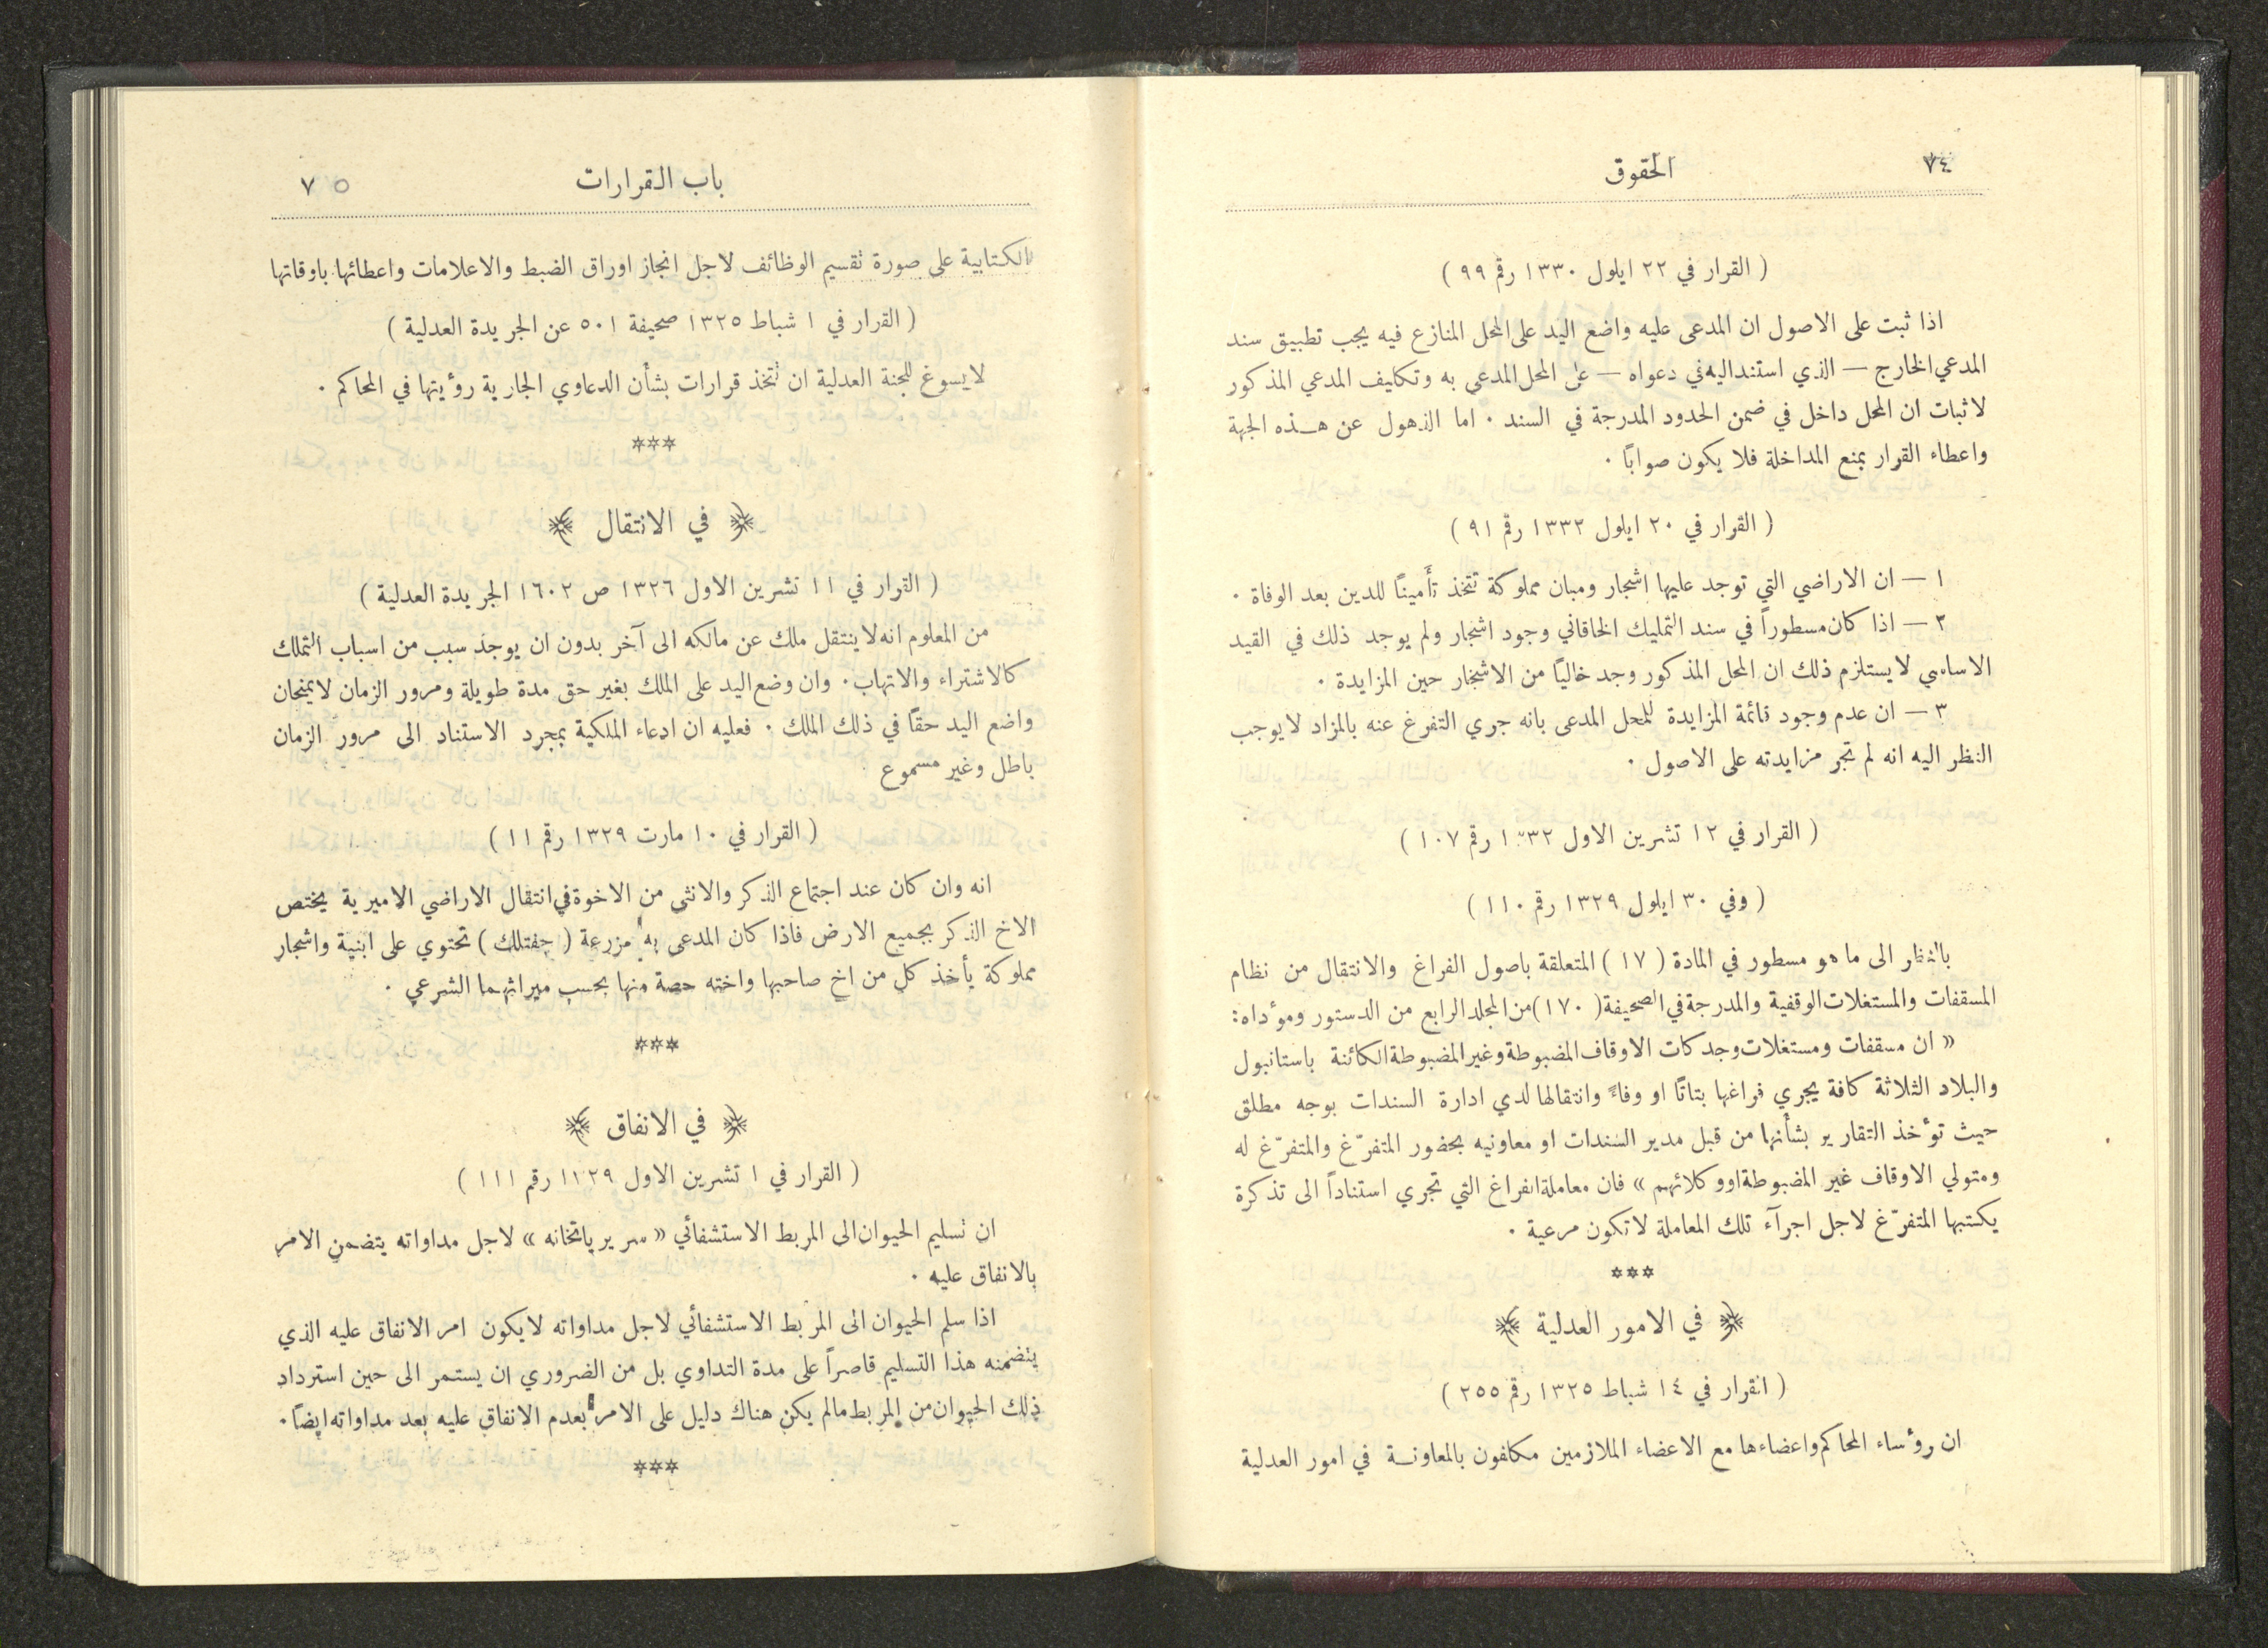 ٧٤
الحقوق
( القرار في ٢٢ ايلول ١٣٣٠ رقم ٩٩ )
اذا ثبت على الاصول ان المدعى عليه واضع اليد على المحل المنازع فيه يجب تطبيق سند
المدعي الخارج — الذي استند اليه في دعواه — على المحل المدعى به وتكليف المدعي المذكور
لاثبات ان المحل داخل في ضمن الحدود المدرجة في السند . اما الذهول عن هذه الجهة
واعطاء القرار بمنع المداخلة فلا يكون صوابًا .
( القرار في ٢٠ ايلول ١٣٣٢ رقم ٩١ )
١ — ان الاراضي التي توجد عليها اشجار ومبان مملوكة تتخذ تأمينًا للدين بعد الوفاة .
٢ — اذا كان مسطوراً في سند التمليك الخاقاني وجود اشجار ولم يوجد ذلك في القيد
الاساسي لا يستلزم ذلك ان المحل المذكور وجد خاليًا من الاشجار حين المزايدة .
٣ — ان عدم وجود قائمة المزايدة للمحل المدعى بانه جري التفرغ عنه بالمزاد لا يوجب
النظر اليه انه لم تجر مزايدته على الاصول .
( القرار في ١٢ تشرين الاول ١٣٣٢ رقم ١٠٧ )
( وفي ٣٠ ايلول ١٣٢٩ رقم ١١٠ )
بالنظر الى ما هو مسطور في المادة ( ١٧ ) المتعلقة باصول الفراغ والانتقال من نظام
المسقفات والمستغلات الوقفية والمدرجة في الصحيفة ( ١٧٠ ) من المجلد الرابع من الدستور ومؤداه :
« ان مسقفات ومستغلات وجدكات الاوقاف المضبوطة وغير المضبوطة الكائنة باستانبول
والبلاد الثلاثة كافة يجري فراغها بتاتًا او وفاءً وانتقالها لدي ادارة السندات بوجه مطلق
حيث تؤخذ التقارير بشأنها من قبل مدير السندات او معاونيه بحضور المتفرّغ والمتفرّغ له
ومتولي الاوقاف غير المضبوطة او وكلائهم » فان معاملة الفراغ التي تجري استناداً الى تذكرة
يكتبها المتفرّغ لاجل اجرآء تلك المعاملة لا تكون مرعية .
***
﴿ في الامور العدلية ﴾
( القرار في ١٤ شباط ١٣٢٥ رقم ٢٥٥ )
ان رؤساء المحاكم واعضاءها مع الاعضاء الملازمين مكلفون بالمعاونة في امور العدلية
باب القرارات
٧٥
الكتابية على صورة تقسيم الوظائف لاجل انجاز اوراق الضبط والاعلامات واعطائها باوقاتها
( القرار في ١ شباط ١٣٢٥ صحيفة ٥٠١ عن الجريدة العدلية )
لا يسوغ للجنة العدلية ان تتخذ قرارات بشأن الدعاوي الجارية رؤيتها في المحاكم .
***
﴿ في الانتقال ﴾
( القرار في ١١ تشرين الاول ١٣٢٦ ص ١٦٠٢ الجريدة العدلية )
من المعلوم انه لا ينتقل ملك عن مالكه الى آخر بدون ان يوجد سبب من اسباب التملك
كالاشتراء والاتهاب . وان وضع اليد على الملك بغير حق مدة طويلة ومرور الزمان لا يمنحان
واضع اليد حقًا في ذلك الملك . فعليه ان ادعاء الملكية بمجرد الاستناد الى مرور الزمان
باطل وغير مسموع
( القرار في ١٠ مارت ١٣٢٩ رقم ١١ )
انه وان كان عند اجتماع الذكر والانثى من الاخوة في انتقال الاراضي الاميرية يختص
الاخ الذكر بجميع الارض فاذا كان المدعى به مزرعة ( جفتلك ) تحتوي على ابنية واشجار
مملوكة يأخذ كل من اخ صاحبها واخته حصة منها بحسب ميراثهما الشرعي .
***
﴿ في الانفاق ﴾
( القرار في ١ تشرين الاول ١٣٢٩ رقم ١١١ )
ان تسليم الحيوان الى المربط الاستشفائي « سرير ياتخانه » لاجل مداواته يتضمن الامر
بالانفاق عليه .
اذا سلم الحيوان الى المربط الاستشفائي لاجل مداواته لا يكون امر الانفاق عليه الذي
يتضمنه هذا التسليم قاصراً على مدة التداوي بل من الضروري ان يستمر الى حين استرداد
ذلك الحيوان من المربط مالم يكن هناك دليل على الامر بعدم الانفاق عليه بعد مداواته ايضًا .
***